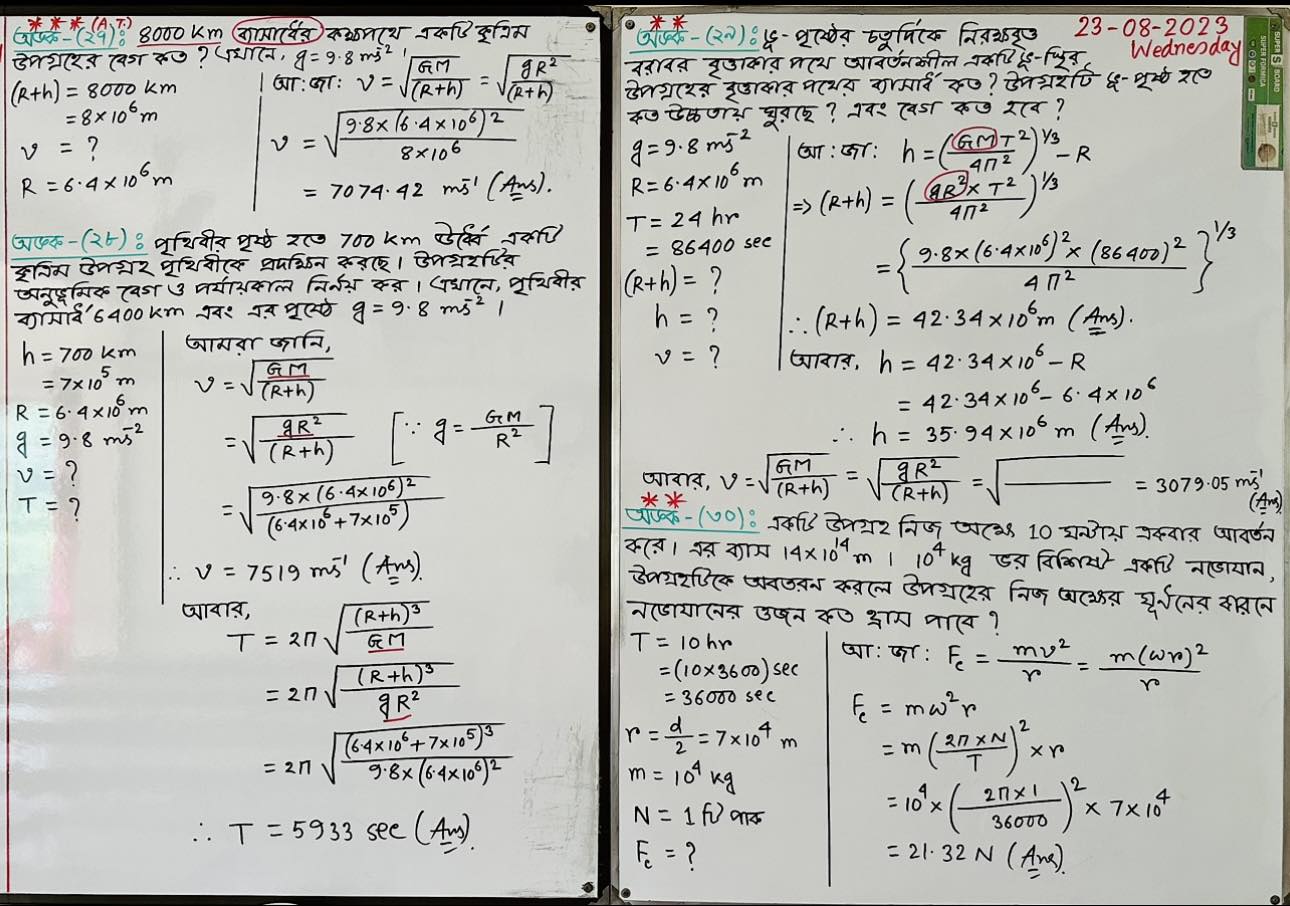 * * * (A.T.)
অংক-(২৭): 8000 km ব্যাসার্ধের কক্ষপথে একটি কৃত্রিম
উপগ্রহের বেগ কত? এখানে, g = 9.8 ms⁻²।
(R+h) = 8000 km
= 8×10⁶ m
v = ?
R = 6.4×10⁶ m
আ:জা: v = √(GM/(R+h)) = √(gR²/(R+h))
v = √(9.8×(6.4×10⁶)²/8×10⁶)
= 7074.42 ms⁻¹ (Ans).
অংক-(২৮): পৃথিবীর পৃষ্ঠ হতে 700 km উর্ধ্বে একটি
কৃত্রিম উপগ্রহ পৃথিবীকে প্রদক্ষিন করছে। উপগ্রহটির
অনুভূমিক বেগ ও পর্যায়কাল নির্নয় কর। এখানে, পৃথিবীর
ব্যাসার্ধ 6400 km এবং এর পৃষ্ঠে g = 9.8 ms⁻²।
h = 700 km
= 7×10⁵ m
R = 6.4×10⁶ m
g = 9.8 ms⁻²
v = ?
T = ?
আমরা জানি,
v = √(GM/(R+h))
= √(gR²/(R+h)) [∵ g = GM/R²]
= √(9.8×(6.4×10⁶)²/(6.4×10⁶+7×10⁵))
∴ v = 7519 ms⁻¹ (Ans).
আবার,
T = 2π √((R+h)³/GM)
= 2π √((R+h)³/gR²)
= 2π √((6.4×10⁶+7×10⁵)³/9.8×(6.4×10⁶)²)
∴ T = 5933 sec (Ans).
23-08-2023
Wednesday
* *
অংক-(২৯): ভূ-পৃষ্ঠের চতুর্দিকে নিরক্ষবৃত্ত
বরাবর বৃত্তাকার পথে আবর্তনশীল একটি ভূ-স্থির
উপগ্রহের বৃত্তাকার পথের ব্যাসার্ধ কত? উপগ্রহটি ভূ-পৃষ্ঠ হতে
কত উচ্চতায় ঘুরছে? এবং বেগ কত হবে?
g = 9.8 ms⁻²
R = 6.4×10⁶ m
T = 24 hr
= 86400 sec
(R+h) = ?
h = ?
v = ?
আ:জা: h = (GMT²/4π²)^1/3 − R
⇒ (R+h) = (gR²×T²/4π²)^1/3
= {9.8×(6.4×10⁶)²×(86400)²/4π²}^1/3
∴ (R+h) = 42.34×10⁶ m (Ans).
আবার, h = 42.34×10⁶ − R
= 42.34×10⁶ − 6.4×10⁶
∴ h = 35.94×10⁶ m (Ans).
আবার, v = √(GM/(R+h)) = √(gR²/(R+h)) = √(——) = 3079.05 ms⁻¹ (Ans)
* *
অংক-(৩০): একটি উপগ্রহ নিজ অক্ষে 10 ঘন্টায় একবার আবর্তন
করে। এর ব্যাস 14×10¹⁴ m। 10⁴ kg ভর বিশিষ্ট একটি নভোযান,
উপগ্রহটিকে অবতরন করলে উপগ্রহের নিজ অক্ষের ঘূর্ননের কারনে
নভোযানের ওজন কত হ্রাস পাবে?
T = 10 hr
= (10×3600) sec
= 36000 sec
r = d/2 = 7×10⁴ m
m = 10⁴ kg
N = 1 টি পাক
F_c = ?
আ:জা: F_c = mv²/r = m(ωr)²/r
F_c = mω²r
= m(2π×N/T)² × r
= 10⁴ × (2π×1/36000)² × 7×10⁴
= 21.32 N (Ans).
SUPER BOARD
SUPER FORMICA